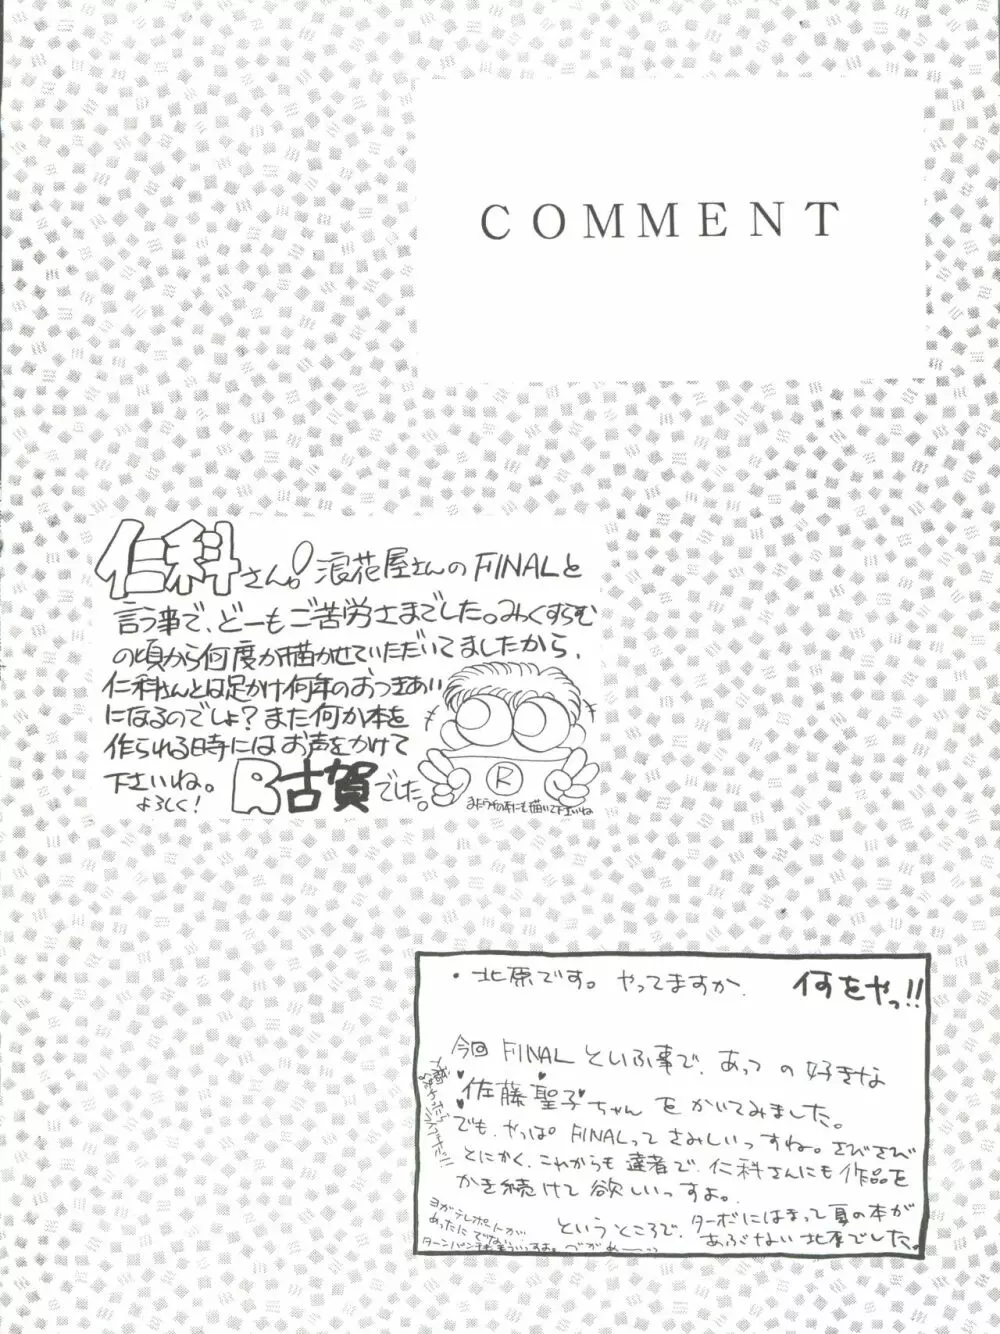 COMMENT
仁科さん! 浪花屋さんのFINALと
言う事で、どーもご苦労さまでした。みっくすらむ
の頃から何度か描かせていただいてましたから、
仁科さんとは足かけ何年のおつきあい
になるのでしょ？また何か本を
作られる時にはお声をかけて
下さいね。
よろしく！
R古賀でした。
R
またうちの本にも描いて下さいね
・北原です。やってますか 何をやっ!!
今回 FINAL といふ事で、あっしの好きな
佐藤聖子ちゃん をかいてみました。
でも、やっぱ FINALって さみしいっすね。さびさび
とにかく、これからも 達者で、仁科さんにも 作品を
かき続けて 欲しいっすよ。
というところで、ターボにはまって 夏の本が
あぶない 北原でした。
ヨガテレポートが
あったに でない